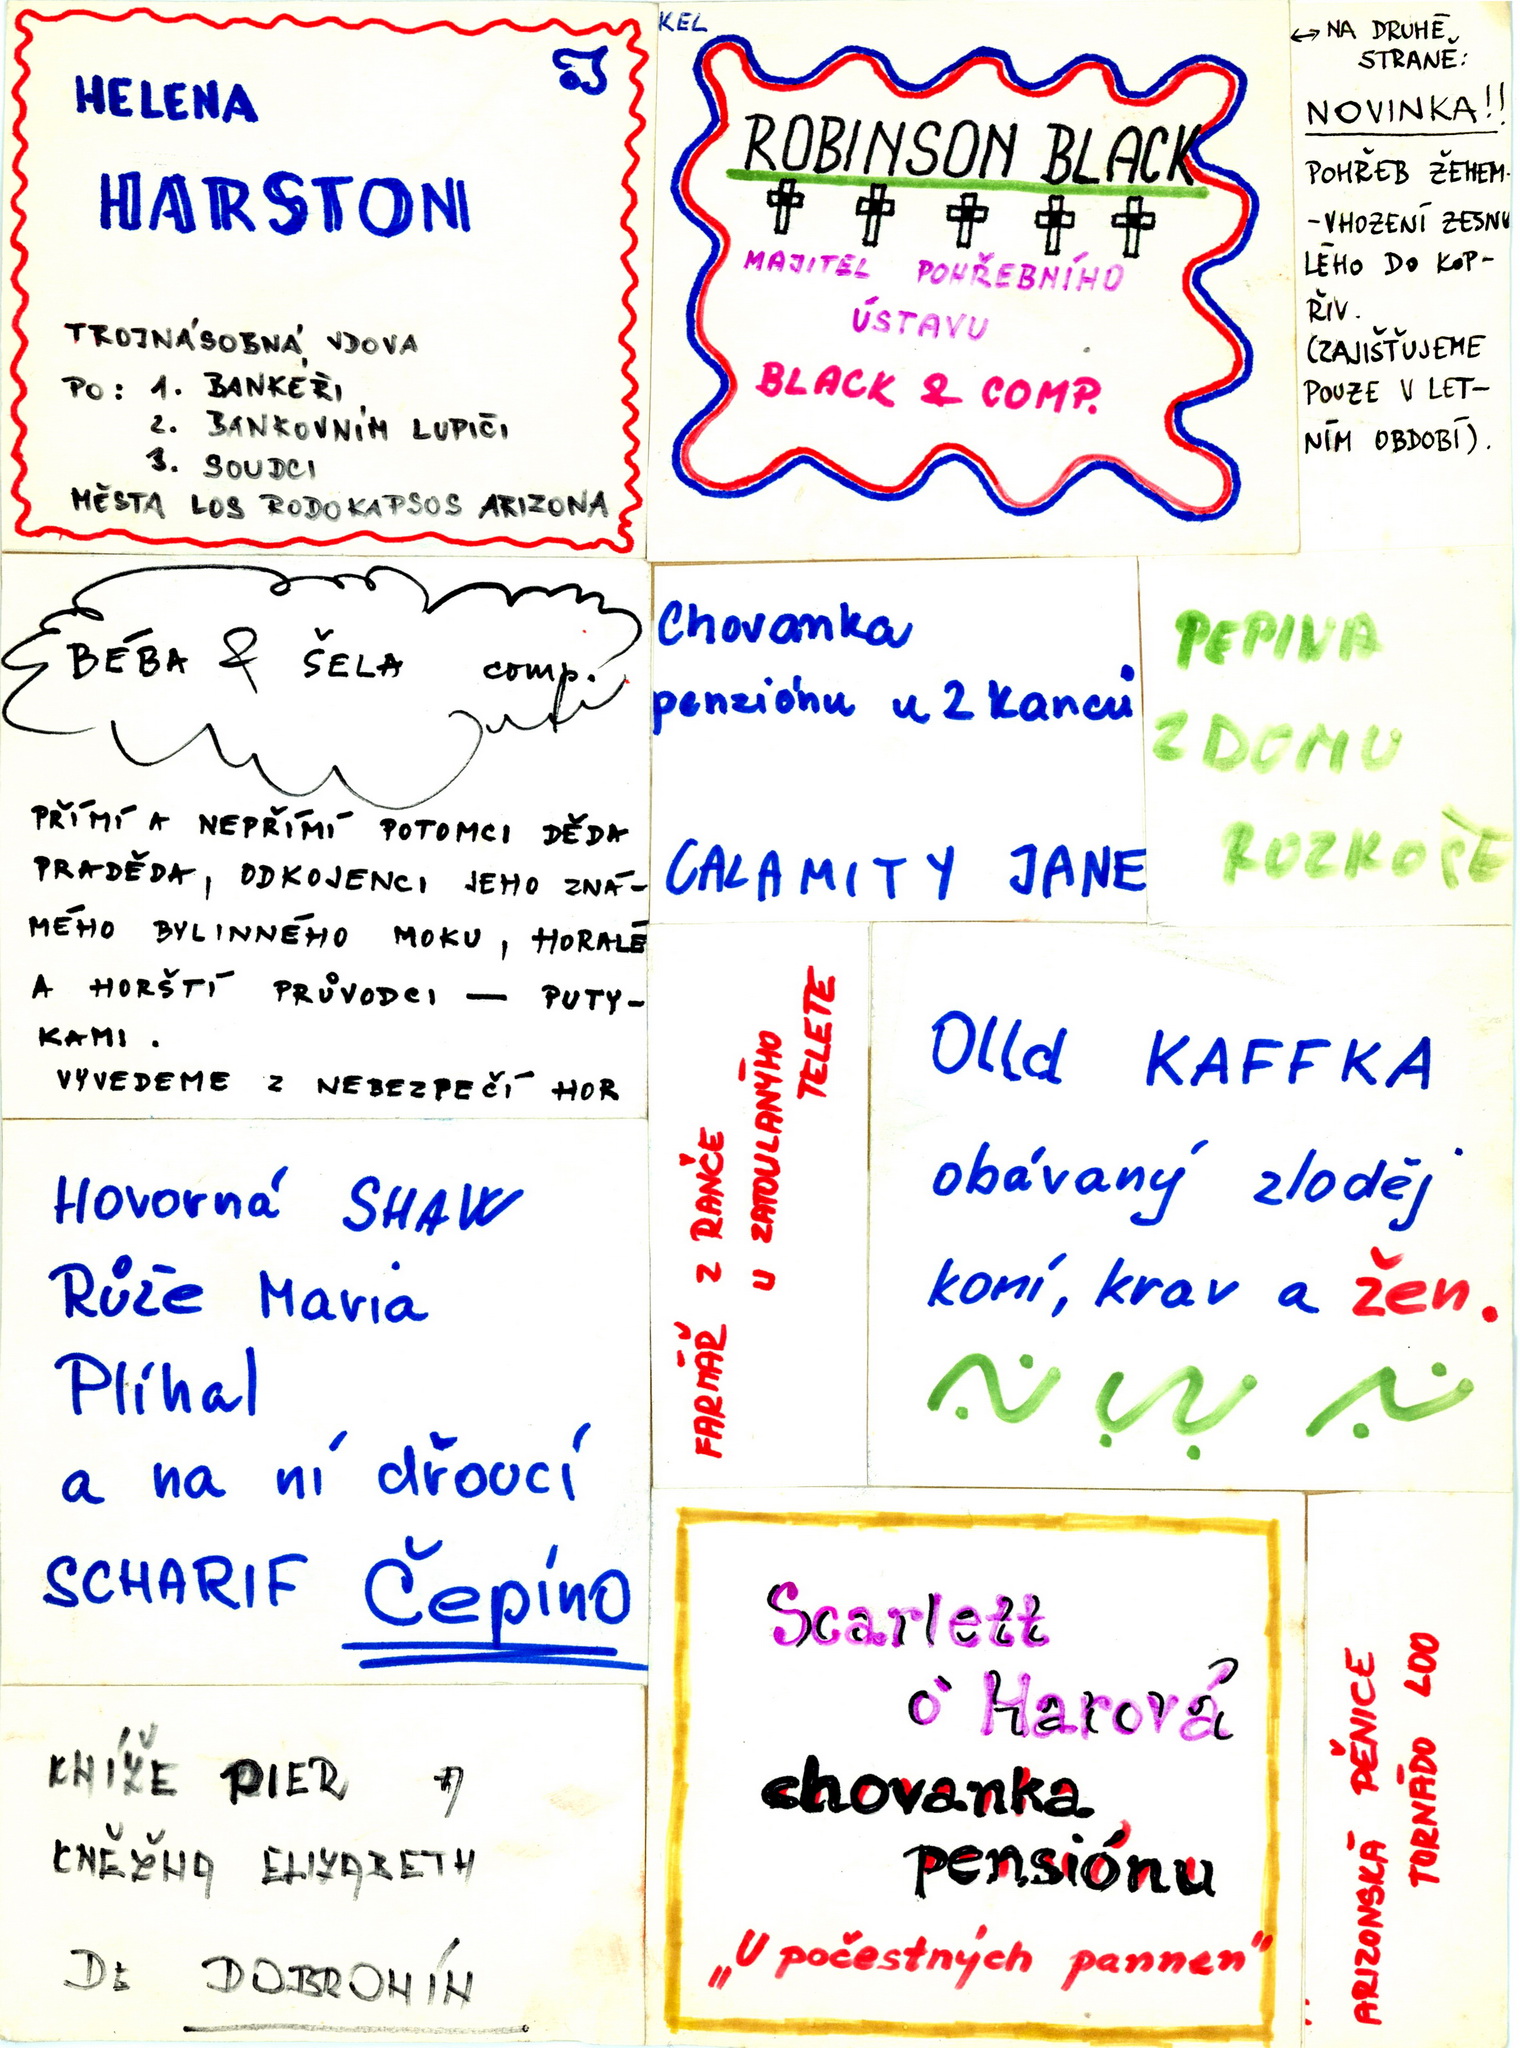 HELENA
HARSTON
TROJNÁSOBNÁ VDOVA
PO: 1. BANKÉŘI
2. BANKOVNÍM LUPIČI
3. SOUDCI
MĚSTA LOS RODOKAPSOS ARIZONA
KEL
ROBINSON BLACK
MAJITEL POHŘEBNÍHO
ÚSTAVU
BLACK & COMP.
↔ NA DRUHÉ
STRANĚ:
NOVINKA!!
POHŘEB ŽEHEM-
-VHOZENÍ ZESNU
LÉHO DO KOP-
ŘIV.
(ZAJIŠŤUJEME
POUZE V LET-
NÍM OBDOBÍ).
BÉBA & ŠELA comp.
PŘÍMÍ A NEPŘÍMÍ POTOMCI DĚDA
PRADĚDA, ODKOJENCI JEHO ZNÁ-
MÉHO BYLINNÉHO MOKU, HORALÉ
A HORŠTÍ PRŮVODCI — PUTY-
KAMI.
VYVEDEME Z NEBEZPEČÍ HOR
Chovanka
penziónu u 2 kanců
CALAMITY JANE
PEPINA
Z DOMU
ROZKOŠE
FARMÁŘ Z RANČE
U ZATOULANÝHO
TELETE
Olld KAFFKA
obávaný zloděj
koní, krav a žen.
Hovorná SHAW
Růže Maria
Plíhal
a na ní dřoucí
SCHARIF Čepíno
KNÍŽE PIER
KNĚŽNA ELIZABETH
DE DOBRONÍN
Scarlett
o' Harová
chovanka
pensiónu
„U počestných pannen"
ARIZONSKÁ PĚNICE
TORNÁDO LOO